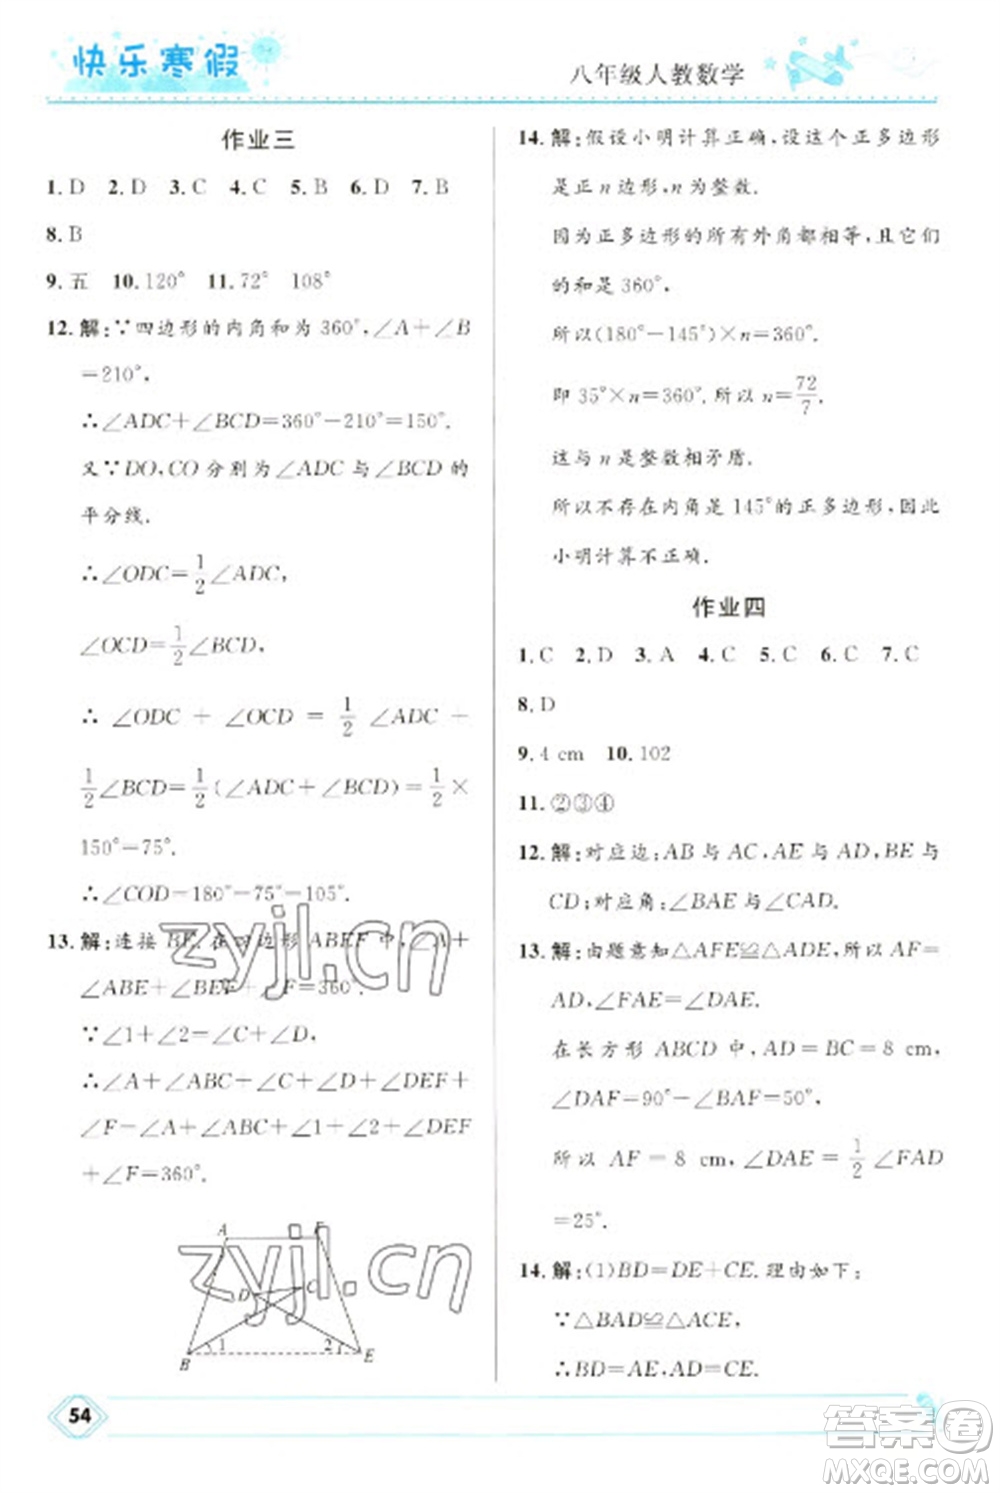 快乐寒假
八年级人教数学
作业三
1. D 2. D 3. C 4. C 5. B 6. D 7. B
8. B
9. 五 10. 120° 11. 72° 108°
12. 解:∵四边形的内角和为 360°,∠A+∠B
=210°,
∴∠ADC+∠BCD=360°-210°=150°.
又∵DO,CO 分别为∠ADC 与∠BCD 的
平分线.
∴∠ODC=1/2∠ADC,
∠OCD=1/2∠BCD,
∴ ∠ODC + ∠OCD = 1/2 ∠ADC +
1/2∠BCD=1/2(∠ADC+∠BCD)=1/2×
150°=75°.
∴∠COD=180°-75°=105°.
13. 解:连接 BE.在四边形 ABEF 中,∠A+
∠ABE+∠BEF+∠F=360°.
∵∠1+∠2=∠C+∠D,
∴∠A+∠ABC+∠C+∠D+∠DEF+
∠F=∠A+∠ABC+∠1+∠2+∠DEF
+∠F=360°.
A F
D C
1 2
B E
54
14. 解:假设小明计算正确,设这个正多边形
是正 n 边形,n 为整数.
因为正多边形的所有外角都相等,且它们
的和是 360°,
所以(180°-145°)×n=360°.
即 35°×n=360°.所以 n=72/7.
这与 n 是整数相矛盾.
所以不存在内角是 145°的正多边形,因此
小明计算不正确.
作业四
1. C 2. D 3. A 4. C 5. C 6. C 7. C
8. D
9. 4 cm 10. 102
11. ②③④
12. 解:对应边:AB 与 AC,AE 与 AD,BE 与
CD;对应角:∠BAE 与∠CAD.
13. 解:由题意知△AFE≌△ADE,所以 AF=
AD,∠FAE=∠DAE.
在长方形 ABCD 中,AD=BC=8 cm,
∠DAF=90°-∠BAF=50°,
所以 AF=8 cm,∠DAE=1/2∠FAD
=25°.
14. 解:(1)BD=DE+CE.理由如下:
∵△BAD≌△ACE,
∴BD=AE,AD=CE.
zyjl.cn
zyjl.cn
答案圈
MXQE.COM